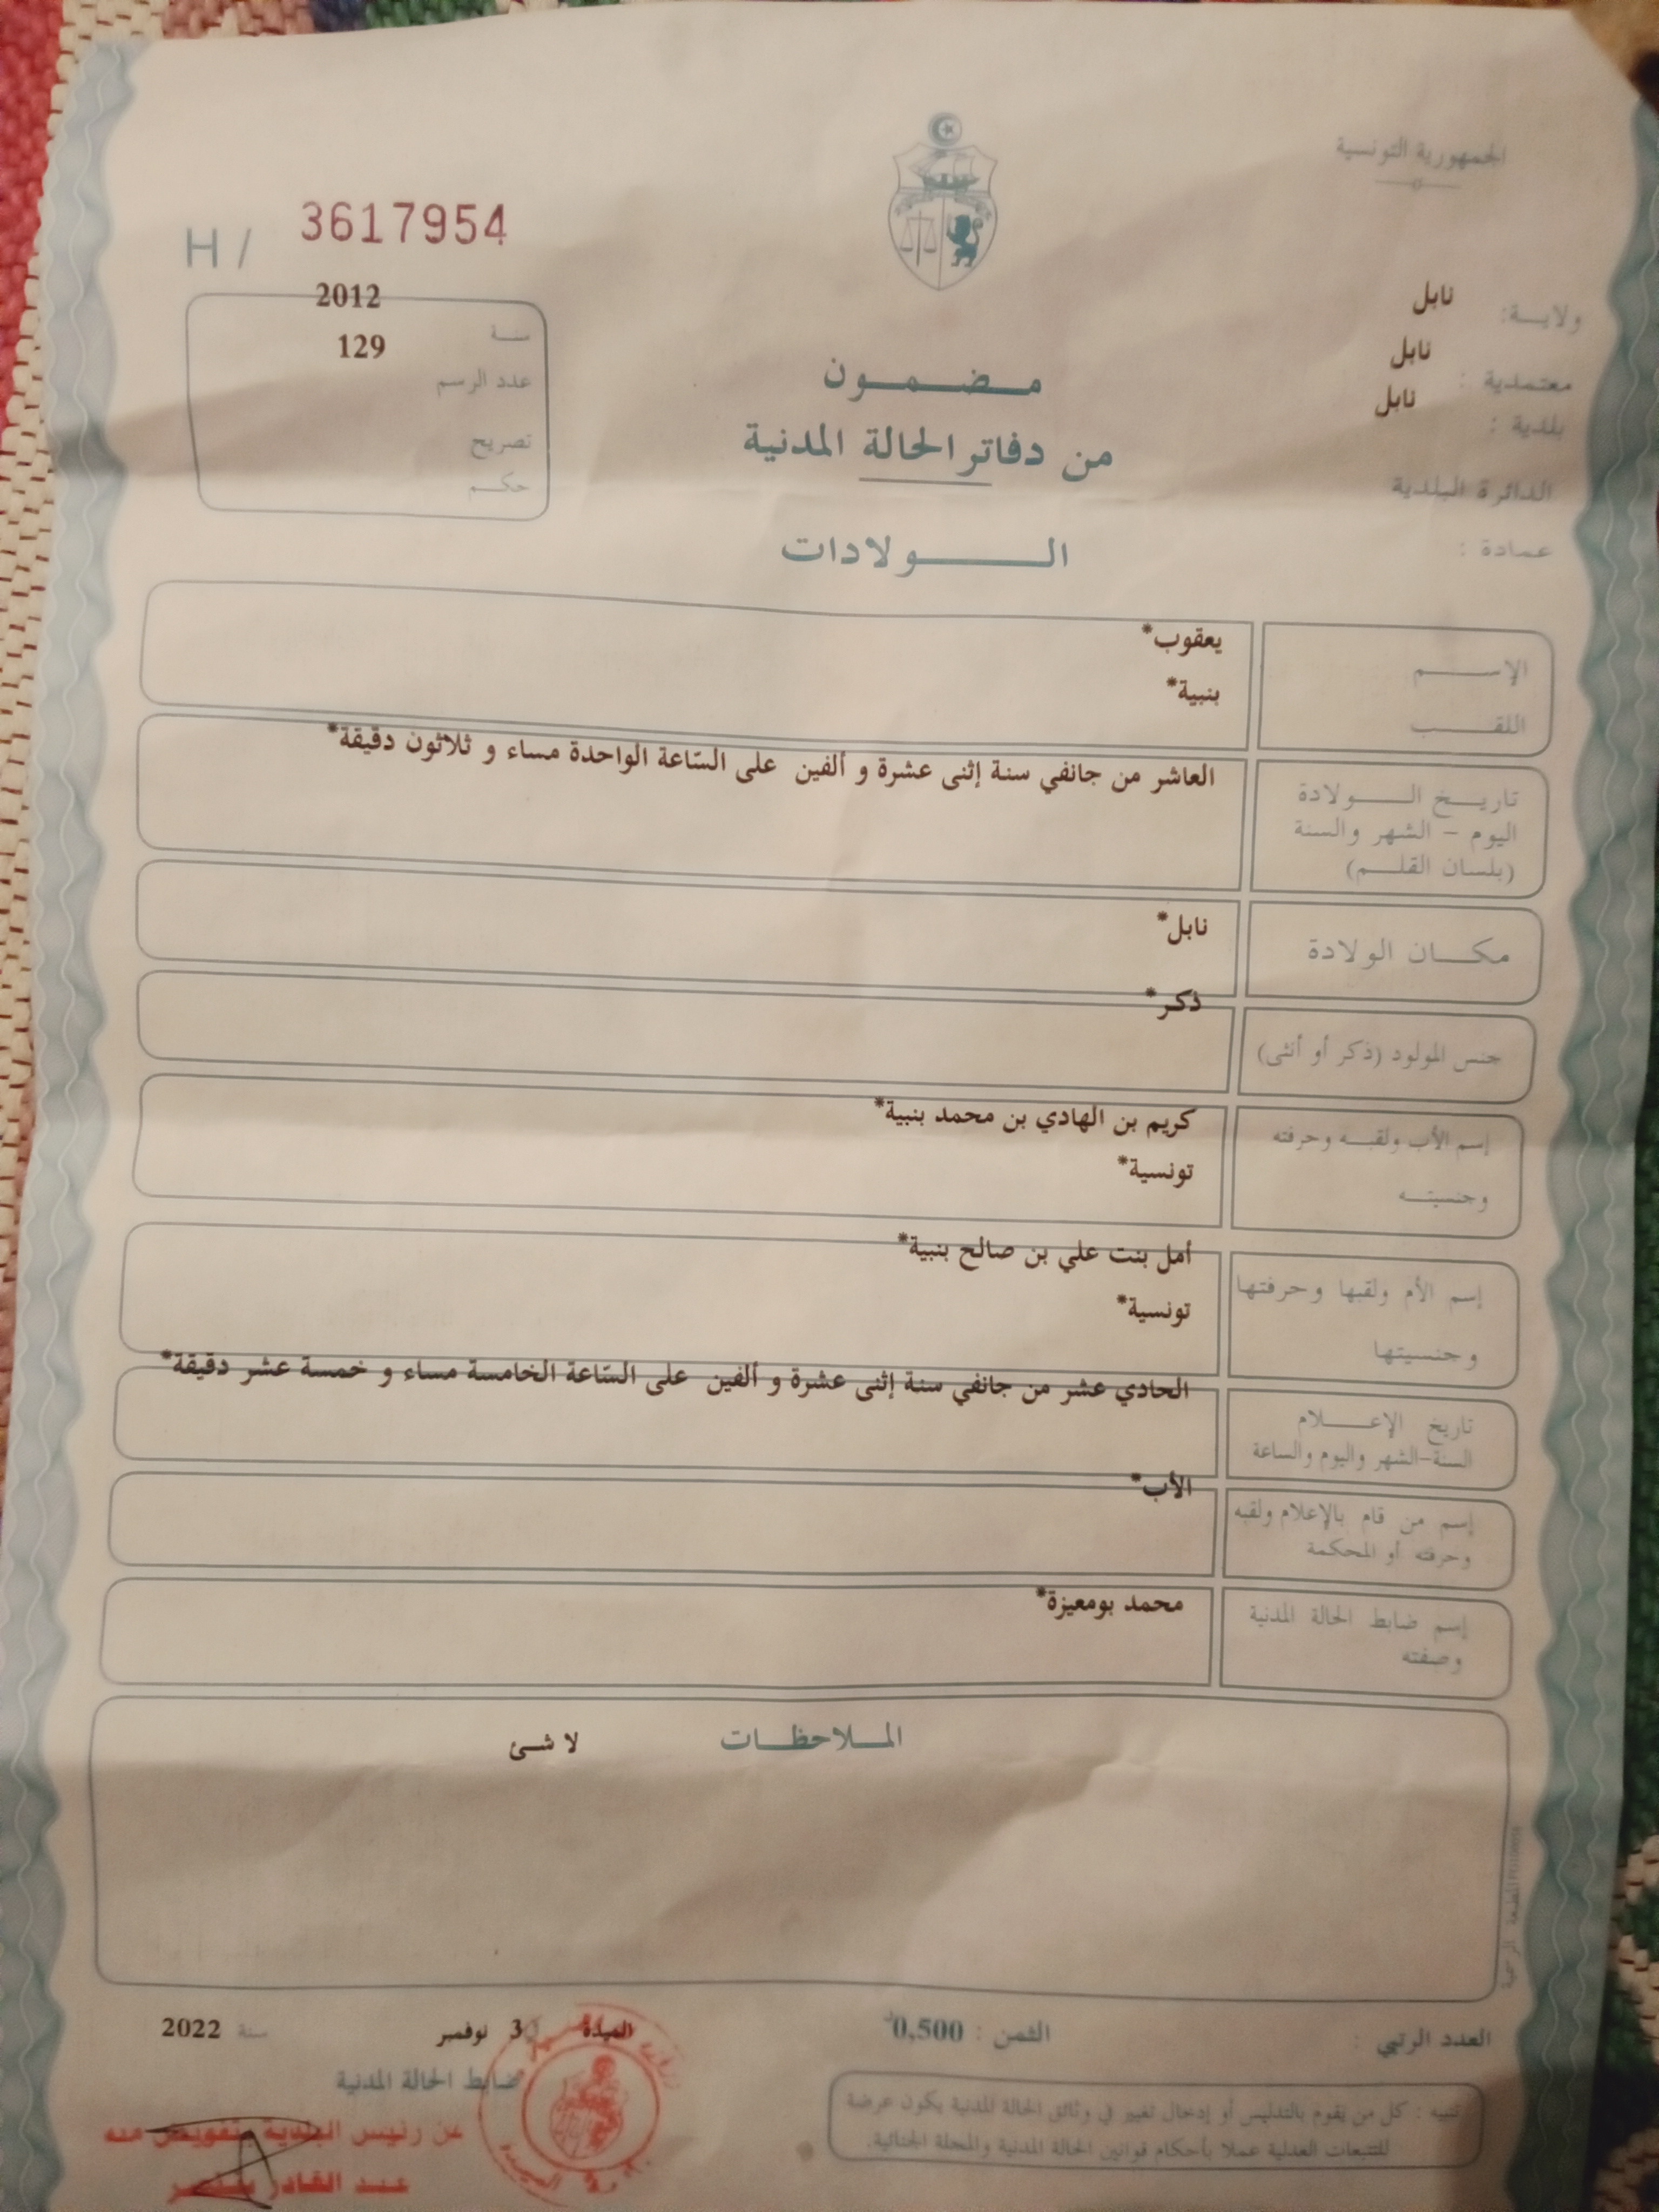 الجمهورية التونسية
H / 3617954
ولايـة: نابل
معتمدية : نابل
بلدية : نابل
الدائرة البلدية
عمادة :
2012
سنة
129
عدد الرسم
تصريح
حكم
مضمون
من دفاتر الحالة المدنية
الولادات
الإسم
يعقوب*
اللقب
بنبية*
تاريخ الولادة
اليوم - الشهر والسنة
(بلسان القلم)
العاشر من جانفي سنة إثنى عشرة و ألفين على السّاعة الواحدة مساء و ثلاثون دقيقة*
مكان الولادة
نابل*
جنس المولود (ذكر أو أنثى)
ذكر*
إسم الأب ولقبه وحرفته
كريم بن الهادي بن محمد بنبية*
وجنسيته
تونسية*
إسم الأم ولقبها وحرفتها
أمل بنت علي بن صالح بنبية*
وجنسيتها
تونسية*
تاريخ الإعلام
السنة-الشهر واليوم والساعة
الحادي عشر من جانفي سنة إثنى عشرة و ألفين على السّاعة الخامسة مساء و خمسة عشر دقيقة*
إسم من قام بالإعلام ولقبه
وحرفته أو المحكمة
الأب*
إسم ضابط الحالة المدنية
وصفته
محمد بومعيزة*
الملاحظات
لا شئ
العدد الرتبي :
الثمن : 0,500
الميدة 3 نوفمبر سنة 2022
ضابط الحالة المدنية
عن رئيس البلدية بتفويض منه
عبد القادر
تنبيه : كل من يقوم بالتدليس أو إدخال تغيير في وثائق الحالة المدنية يكون عرضة
للتتبعات العدلية عملا بأحكام قوانين الحالة المدنية والمجلة الجنائية.